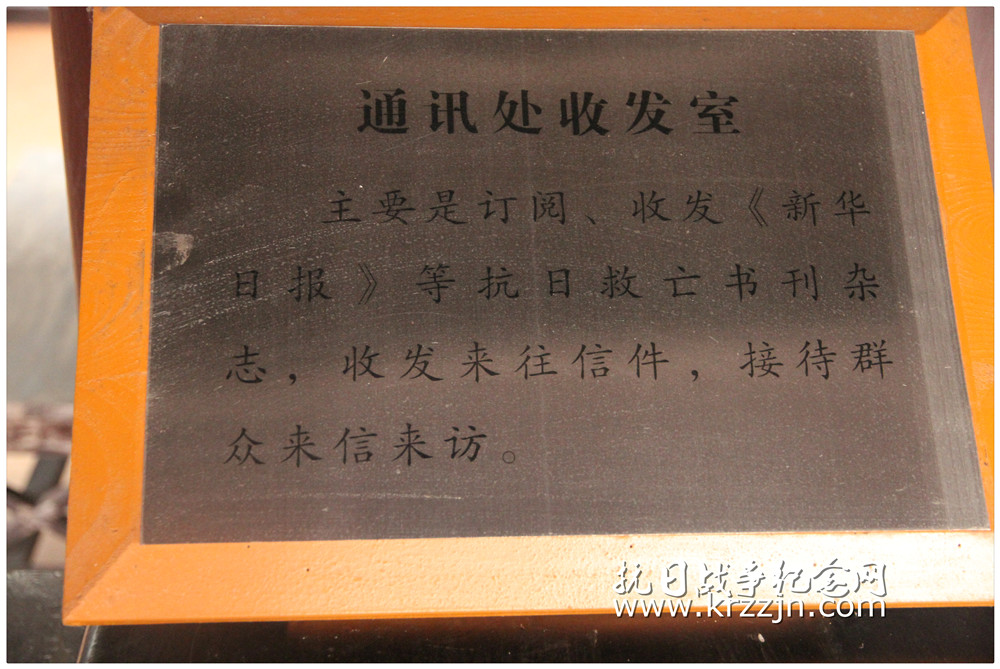 通讯处收发室
主要是订阅、收发《新华
日报》等抗日救亡书刊杂
志，收发来往信件，接待群
众来信来访。
抗日战争纪念网
www.krzzjn.com